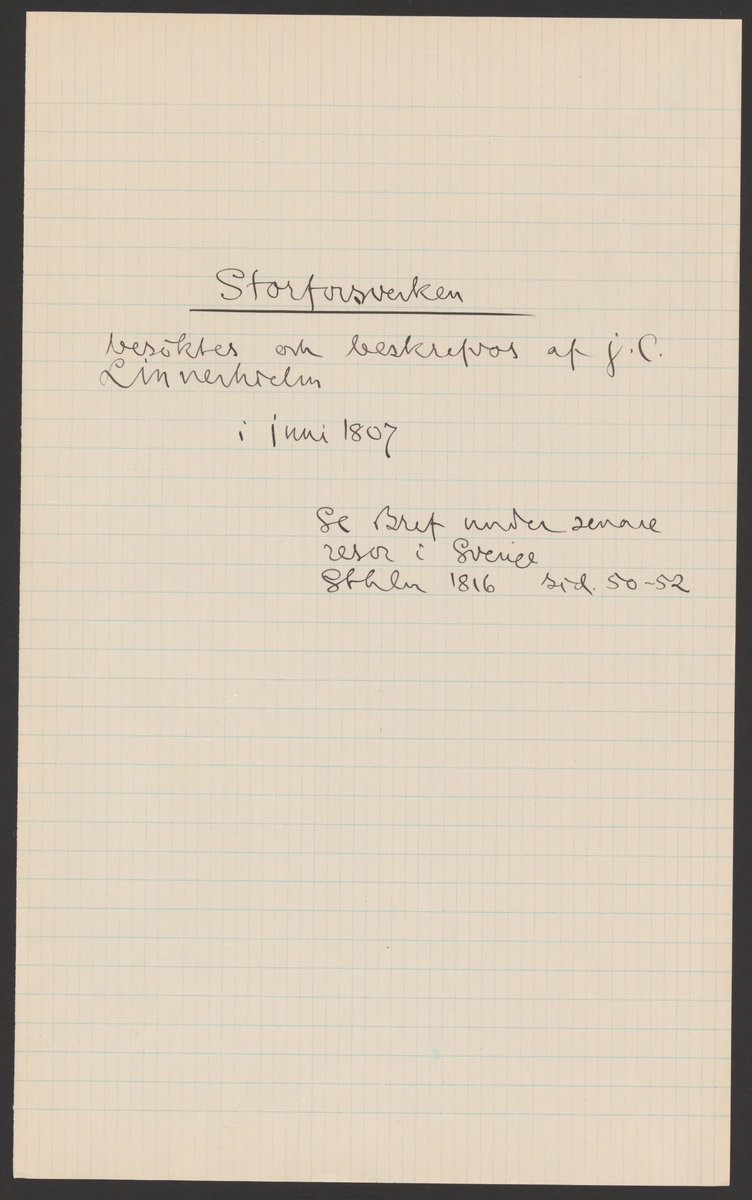 Storforsverken
besöktes och beskrefvos af J. C.
Linnerhielm
i juni 1807
Se Bref under senare
resor i Sverige
Sthlm 1816 sid. 50-52